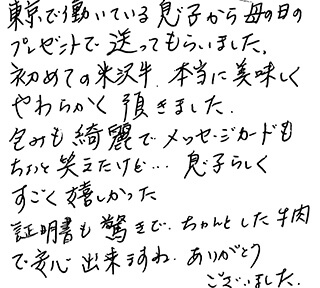 東京で働いている息子から母の日の
プレゼントで送ってもらいました。
初めての米沢牛、本当に美味しく
やわらかく頂きました。
包みも綺麗でメッセージカードも
ちょっと笑えたけど… 息子らしく
すごく嬉しかった
証明書も驚きで、ちゃんとした牛肉
で安心出来ますね。ありがとう
ございました。